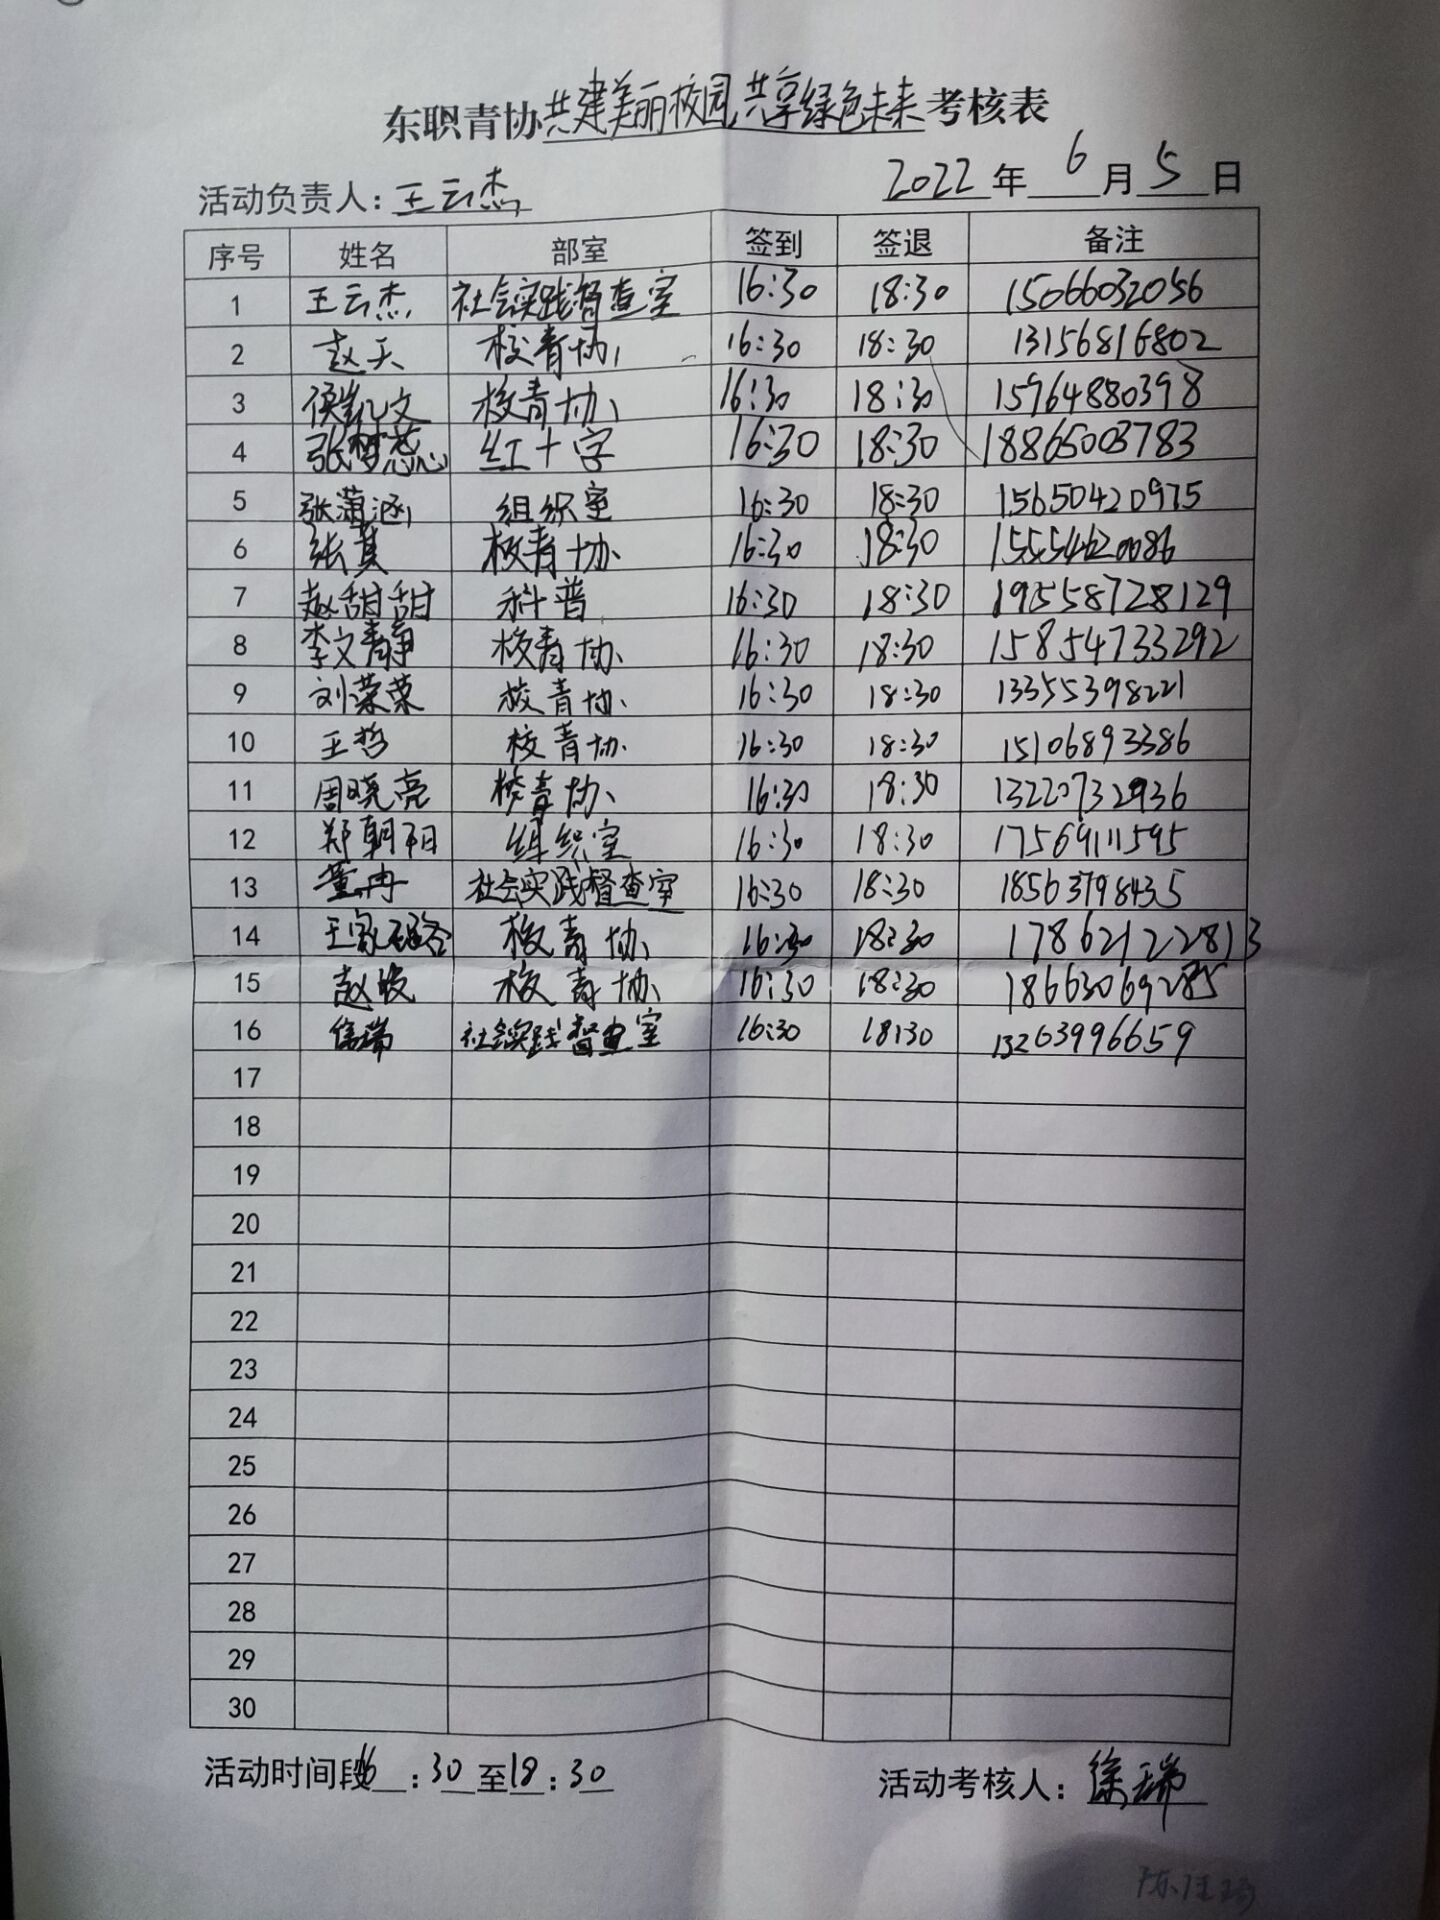 东职青协共建美丽校园,共享绿色未来考核表
活动负责人:王云杰 2022年6月5日
序号 姓名 部室 签到 签退 备注
1 王云杰 社会实践督查室 16:30 18:30 15066032056
2 赵天 校青协 16:30 18:30 13156816802
3 侯凯文 校青协 16:30 18:30 15964880398
4 张梦蕊 红十字 16:30 18:30 18865003783
5 张潇涵 组织室 16:30 18:30 15650420975
6 张其 校青协 16:30 18:30
7 赵甜甜 科普 16:30 18:30 19558728129
8 李文静 校青协 16:30 18:30 15854733292
9 刘荣荣 校青协 16:30 18:30 13355398221
10 王哲 校青协 16:30 18:30 15106893386
11 周晓亮 校青协 16:30 18:30 13220732936
12 郑朝阳 组织室 16:30 18:30 17569111595
13 董冉 社会实践督查室 16:30 18:30 18563798435
14 校青协 16:30 18:30 17862122813
15 校青协 16:30 18:30 18663069285
16 社会实践督查室 16:30 18:30 13263996659
17
18
19
20
21
22
23
24
25
26
27
28
29
30
活动时间段16:30至18:30 活动考核人:徐瑞